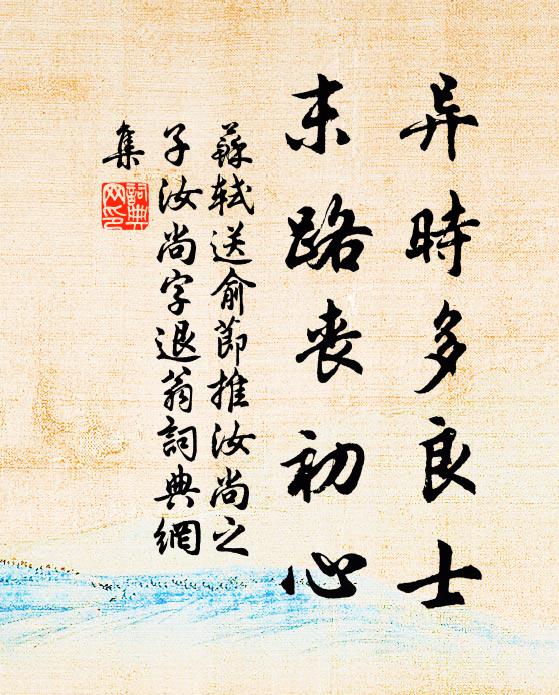 异時多良士
末路丧初心
蘇軾送俞節推汝尚之
子汝尚字退翁詞典網
集
詞典
网印